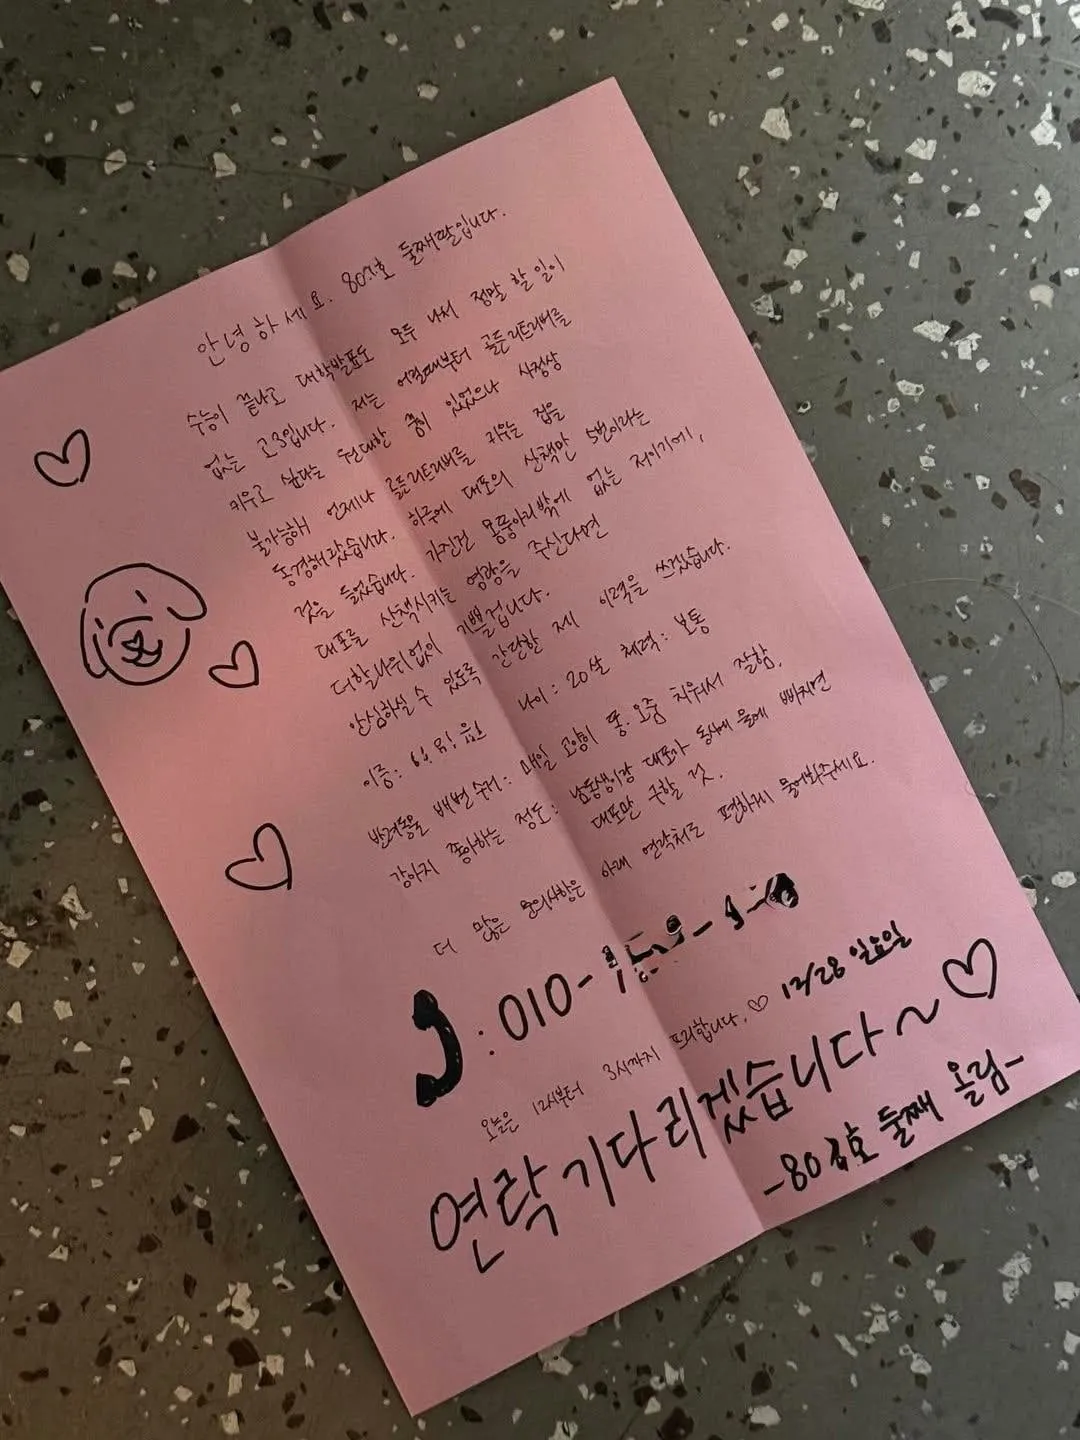 안녕하세요. 80호 둘째딸입니다.
수능이 끝나고 대학발표도 모두 나서 정말 할 일이
없는 고3입니다. 저는 어릴때부터 골든리트리버를
키우고 싶다는 원대한 꿈이 있었으나 사정상
불가능해 언제나 골든리트리버를 키우는 집을
동경해왔습니다. 하루에 대포의 산책만 5번이라는
것을 들었습니다. 가진건 몸뚱아리밖에 없는 저이기에,
대포를 산책시키는 영광을 주신다면
더할나위없이 기쁠겁니다.
안심하실 수 있도록 간단한 제 이력을 쓰겠습니다.
이름: 나이: 20살 체력: 보통
반려동물 배변수거: 매일 고양이 똥.오줌 치워서 잘함.
강아지 좋아하는 정도: 남동생이랑 대포가 동시에 물에 빠지면
대포만 구할 것.
더 많은 문의사항은 아래 연락처로 편하게 물어봐주세요.
: 010-
오늘은 12시부터 3시까지 프리합니다.♡ 12/28 일요일
연락 기다리겠습니다~♡
-80호 둘째 올림-